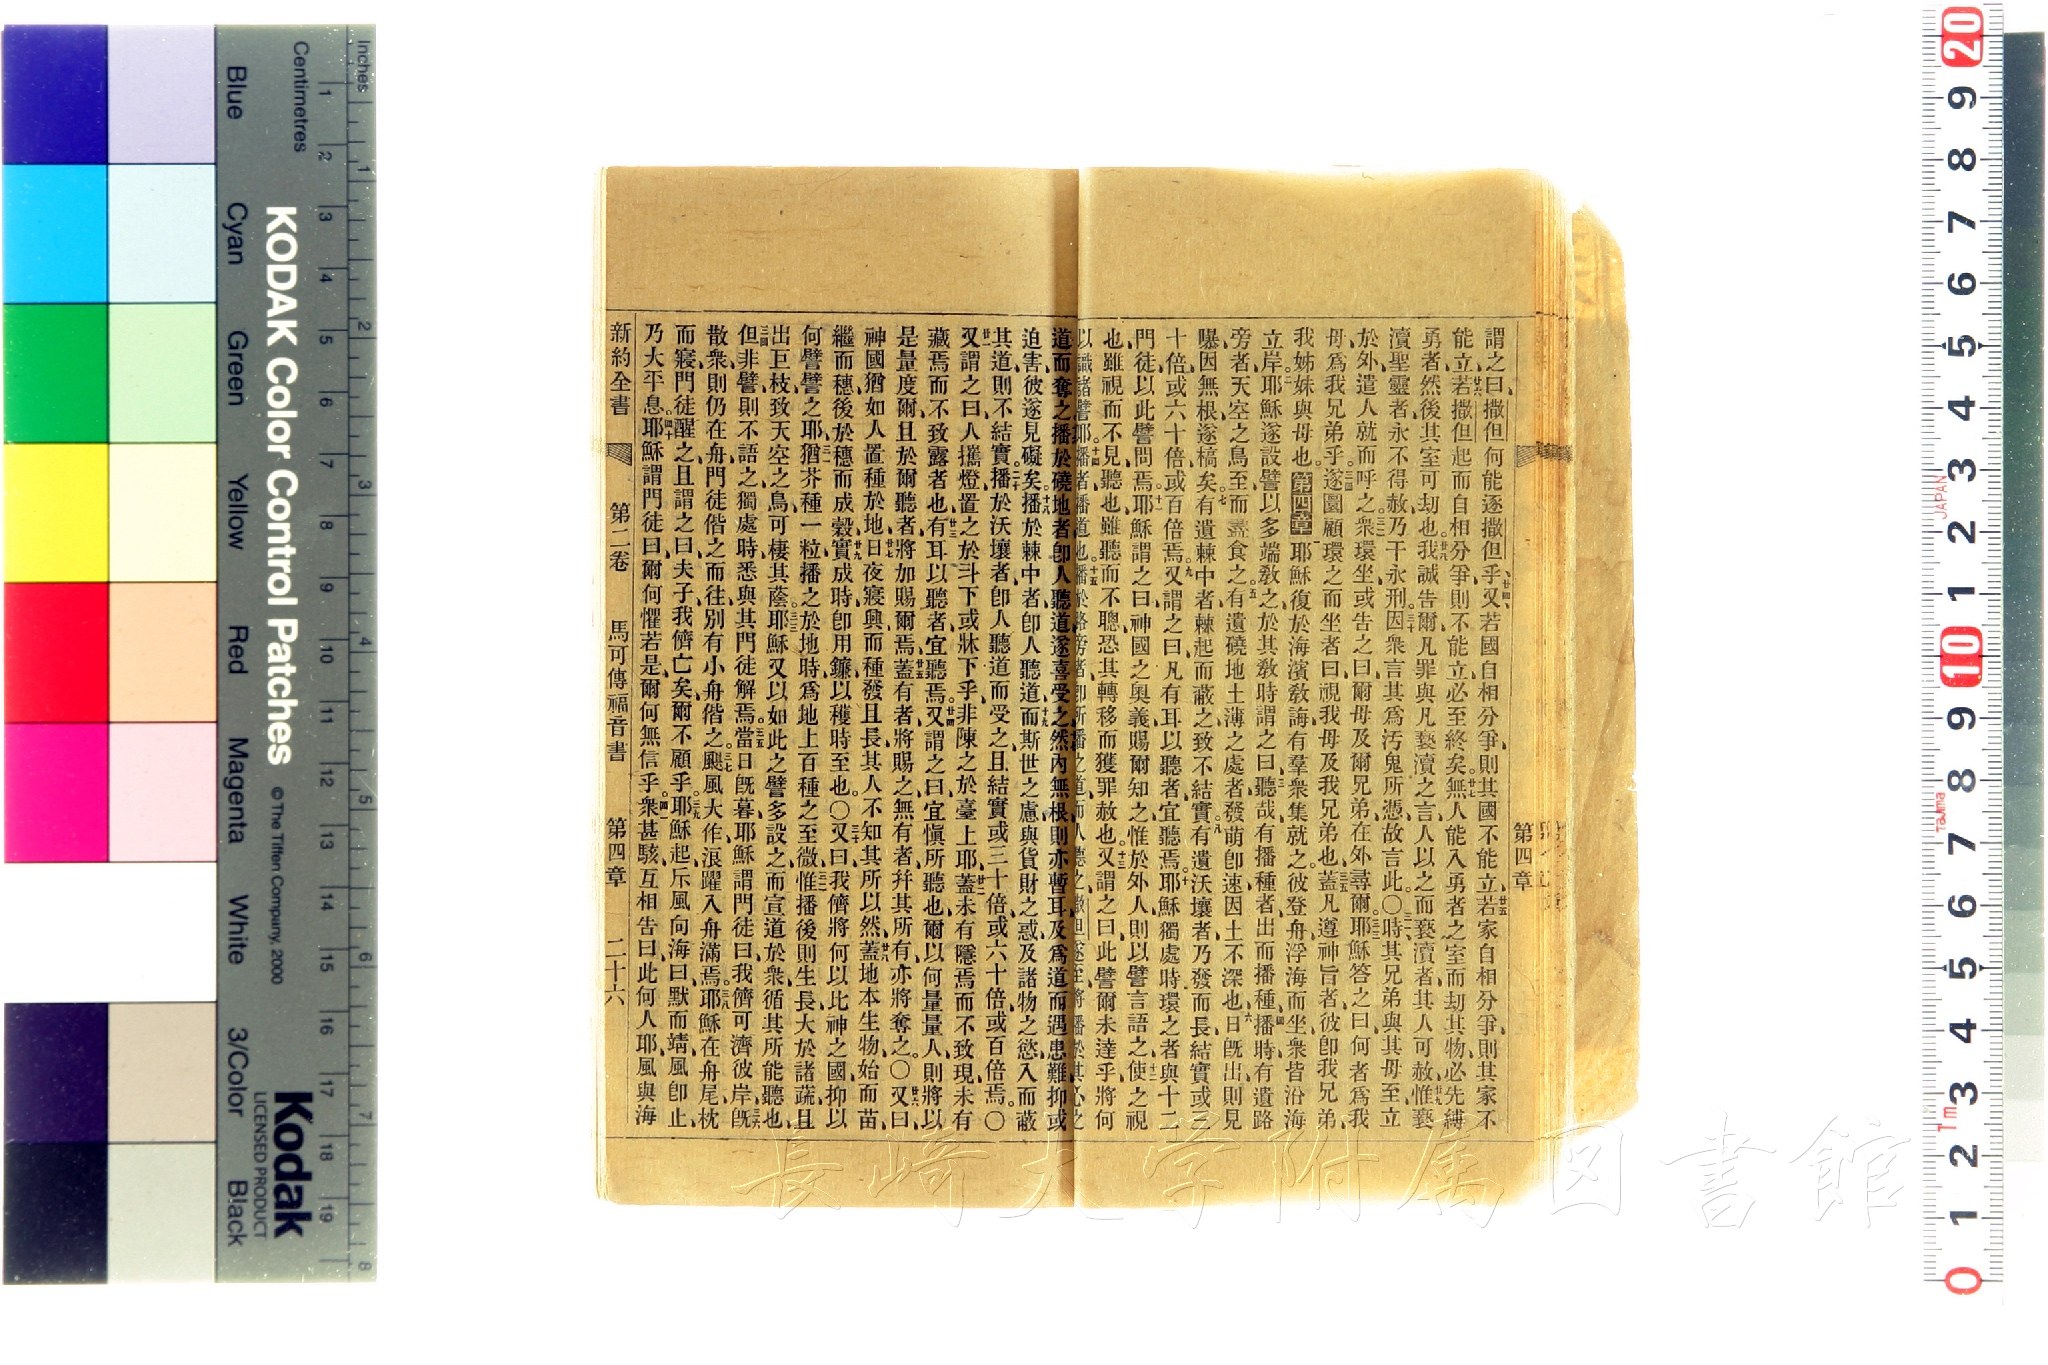 謂之曰、撒但何能逐撒但乎、又若國自相分爭、則其國不能立、若家自相分爭、則其家不
能立、若撒但起而自相分爭、則不能立、必至終矣。無人能入勇者之室而劫其物、必先縛
勇者、然後其室可劫也。我誠告爾、凡罪與凡褻瀆之言、人以之而褻瀆者、其人可赦、惟褻
瀆聖靈者、永不得赦、乃干永刑。因衆言其爲汚鬼所憑、故言此。〇時其兄弟與其母至、立
於外、遣人就而呼之、衆環坐、或告之曰、爾母及爾兄弟在外尋爾。耶穌答之曰、何者爲我
母、爲我兄弟乎。遂圜顧環之而坐者曰、視我母及我兄弟也。蓋凡遵神旨者、彼卽我兄弟、
我姊妹與母也。第四章 耶穌復於海濱敎誨、有羣衆集就之。彼登舟浮海而坐、衆皆沿海
立岸、耶穌遂設譬以多端敎之、於其敎時謂之曰、聽哉、有播種者出而播種、播時有遺路
旁者、天空之鳥至而盡食之。有遺磽地土薄之處者、發萌卽速、因土不深也、日旣出則見
曝、因無根、遂槁矣。有遺棘中者、棘起而蔽之、致不結實。有遺沃壤者、乃發而長、結實或三
十倍、或六十倍、或百倍焉。又謂之曰、凡有耳以聽者、宜聽焉。耶穌獨處時、環之者與十二
門徒以此譬問焉。耶穌謂之曰、神國之奧義、賜爾知之、惟於外人、則以譬言語之、使之視
也雖視而不見、聽也雖聽而不聰、恐其轉移而獲罪赦也。又謂之曰、此譬爾未達乎、將何
以識諸譬耶。播者播道也。播於路旁者、卽所播之道而人聽之、撒但遂至、將播於其心之
道而奪之。播於磽地者、卽人聽道遂喜受之、然內無根、則亦暫耳、及爲道而遇患難、抑或
迫害、彼遂見礙矣。播於棘中者、卽人聽道、而斯世之慮、與貨財之惑、及諸物之慾、入而蔽
其道、則不結實。播於沃壤者、卽人聽道而受之、且結實、或三十倍、或六十倍、或百倍焉。〇
又謂之曰、人攜燈置之於斗下、或牀下乎、非陳之於臺上耶。蓋未有隱焉而不致現、未有
藏焉而不致露者也。有耳以聽者、宜聽焉。又謂之曰、宜愼所聽也、爾以何量量人、則將以
是量度爾、且於爾聽者、將加賜爾焉。蓋有者將賜之、無有者、幷其所有亦將奪之。〇又曰、
神國猶如人置種於地、日夜寢興、而種發且長、其人不知其所以然。蓋地本生物、始而苗、
繼而穗、後於穗而成穀、實成時、卽用鐮、以穫時至也。〇又曰、我儕將何以比神之國、抑以
何譬譬之耶。猶芥種一粒、播之於地時、爲地上百種之至微、惟播後則生、長大於諸蔬、且
出巨枝、致天空之鳥可棲其蔭。耶穌又以如此之譬、多設之而宣道於衆、循其所能聽也。
但非譬則不語之、獨處時、悉與其門徒解焉。當日旣暮、耶穌謂門徒曰、我儕可濟彼岸。旣
散衆、則仍在舟、門徒偕之而往、別有小舟偕之。颶風大作、浪躍入舟滿焉。耶穌在舟尾枕
而寢、門徒醒之、且謂之曰、夫子、我儕亡矣、爾不顧乎。耶穌起、斥風、向海曰、默而靖、風卽止、
乃大平息。耶穌謂門徒曰、爾何懼若是、爾何無信乎。衆甚駭、互相告曰、此何人耶、風與海
新約全書 第二卷 馬可傳福音書 第四章 二十六
第四章
長崎大学附属図書館
KODAK Color Control Patches
© The Tiffen Company, 2000
Kodak
LICENSED PRODUCT
Inches
Centimetres
Blue
Cyan
Green
Yellow
Red
Magenta
White
3/Color
Black
JAPAN
Tajima
Tm